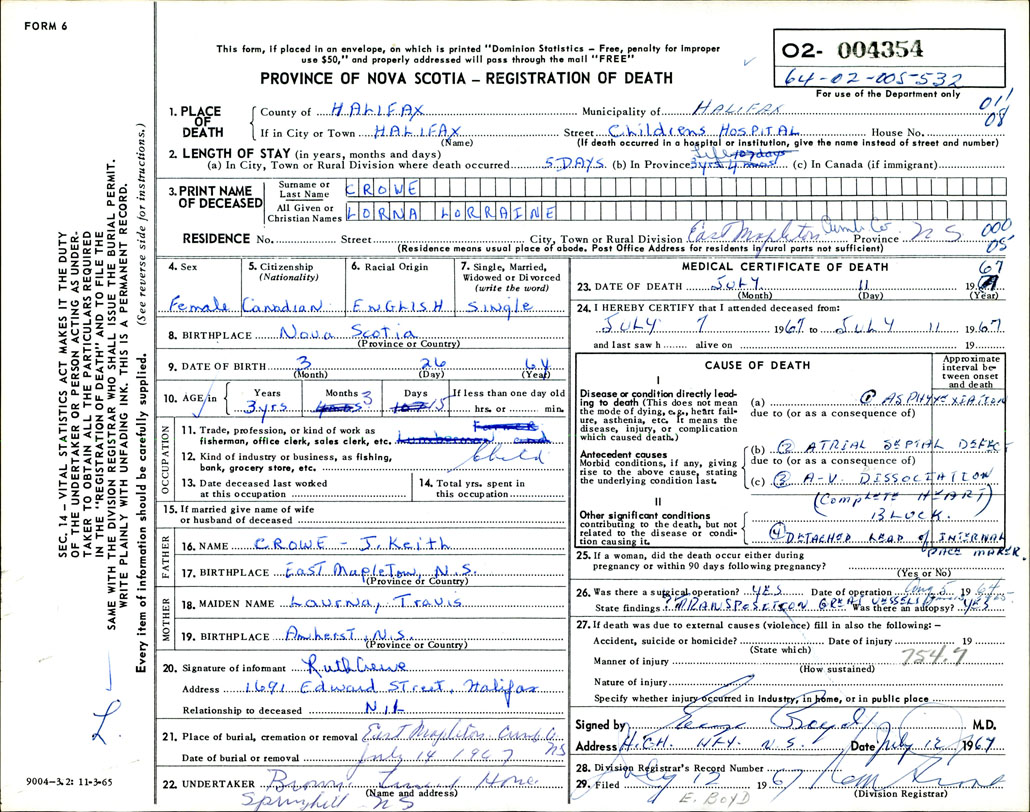 FORM 6
This form, if placed in an envelope, on which is printed "Dominion Statistics – Free, penalty for improper
use $50," and properly addressed will pass through the mail "FREE"
PROVINCE OF NOVA SCOTIA – REGISTRATION OF DEATH
02- 004354
64-02-005-532
For use of the Department only
011
08
1. PLACE OF DEATH
County of HALIFAX Municipality of HALIFAX
If in City or Town HALIFAX Street Childrens HOSPITAL House No.
(Name) (If death occurred in a hospital or institution, give the name instead of street and number)
2. LENGTH OF STAY (in years, months and days)
(a) In City, Town or Rural Division where death occurred 5 DAYS (b) In Province Life (c) In Canada (if immigrant)
3. PRINT NAME OF DECEASED
Surname or Last Name CROWE
All Given or Christian Names LORNA LORRAINE
RESIDENCE No. Street City, Town or Rural Division East Mapleton Cumb Co. Province NS
000
05
(Residence means usual place of abode. Post Office Address for residents in rural parts not sufficient)
4. Sex Female
5. Citizenship (Nationality) Canadian
6. Racial Origin ENGLISH
7. Single, Married, Widowed or Divorced (write the word) Single
8. BIRTHPLACE Nova Scotia
(Province or Country)
9. DATE OF BIRTH 3 26 64
(Month) (Day) (Year)
10. AGE in Years 3 yrs Months 3 Days 15 If less than one day old hrs. or min.
OCCUPATION
11. Trade, profession, or kind of work as
fisherman, office clerk, sales clerk, etc.
12. Kind of industry or business, as fishing,
bank, grocery store, etc. Child
13. Date deceased last worked
at this occupation
14. Total yrs. spent in
this occupation
15. If married give name of wife
or husband of deceased
FATHER
16. NAME CROWE - J. Keith
17. BIRTHPLACE East Mapleton, N.S.
(Province or Country)
MOTHER
18. MAIDEN NAME Laurna, Travis
19. BIRTHPLACE Amherst, N.S.
(Province or Country)
20. Signature of informant Ruth Crowe
Address 1691 Edward Street, Halifax
Relationship to deceased NIL
21. Place of burial, cremation or removal East Mapleton Cumb Co. NS
Date of burial or removal July 14 1967
22. UNDERTAKER Brown Funeral Home
(Name and address)
Springhill NS
MEDICAL CERTIFICATE OF DEATH
23. DATE OF DEATH JULY 11 1967
(Month) (Day) (Year)
24. I HEREBY CERTIFY that I attended deceased from:
JULY 7 1967 to JULY 11 1967
and last saw h alive on 19
CAUSE OF DEATH
Approximate interval between onset and death
I
Disease or condition directly leading to death (This does not mean the mode of dying, e.g., heart failure, asthenia, etc. It means the disease, injury, or complication which caused death.)
(a) ① ASPHYXIATION
due to (or as a consequence of)
Antecedent causes
Morbid conditions, if any, giving rise to the above cause, stating the underlying condition last.
(b) ② ATRIAL SEPTAL DEFECT
due to (or as a consequence of)
(c) ③ A-V. DISSOCIATION
(COMPLETE HEART)
BLOCK.
II
Other significant conditions
contributing to the death, but not related to the disease or condition causing it.
④ DETACHED LEAD of INTERNAL
PACE MAKER.
25. If a woman, did the death occur either during
pregnancy or within 90 days following pregnancy?
(Yes or No)
26. Was there a surgical operation? YES Date of operation Aug 5 1964
State findings TRANSPOSITION GREAT VESSELS Was there an autopsy? YES
27. If death was due to external causes (violence) fill in also the following: –
Accident, suicide or homicide? Date of injury 19
(State which)
754.7
Manner of injury
(How sustained)
Nature of injury
Specify whether injury occurred in industry, in home, or in public place
Signed by George Boyd M.D.
Address H.C.H. HFX N.S. Date July 12 1967
28. Division Registrar's Record Number
29. Filed July 17 1967
(Division Registrar)
E. BOYD
SEC. 14 – VITAL STATISTICS ACT MAKES IT THE DUTY
OF THE UNDERTAKER OR PERSON ACTING AS UNDER-
TAKER TO OBTAIN ALL THE PARTICULARS REQUIRED
IN THE "REGISTRATION OF DEATH" AND TO FILE THE
SAME WITH THE DIVISION REGISTRAR WHO SHALL ISSUE THE BURIAL PERMIT.
WRITE PLAINLY WITH UNFADING INK. THIS IS A PERMANENT RECORD.
Every item of information should be carefully supplied. (See reverse side for instructions.)
L.
9004-3.2: 11-3-65